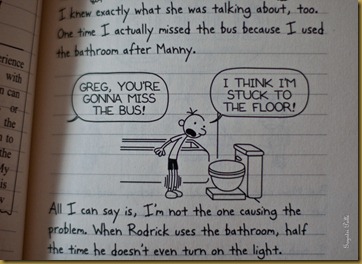 I knew exactly what she was talking about, too.
One time I actually missed the bus because I used
the bathroom after Manny.
GREG, YOU'RE
GONNA MISS
THE BUS!
I THINK I'M
STUCK TO
THE FLOOR!
All I can say is, I'm not the one causing the
problem. When Rodrick uses the bathroom, half
the time he doesn't even turn on the light.